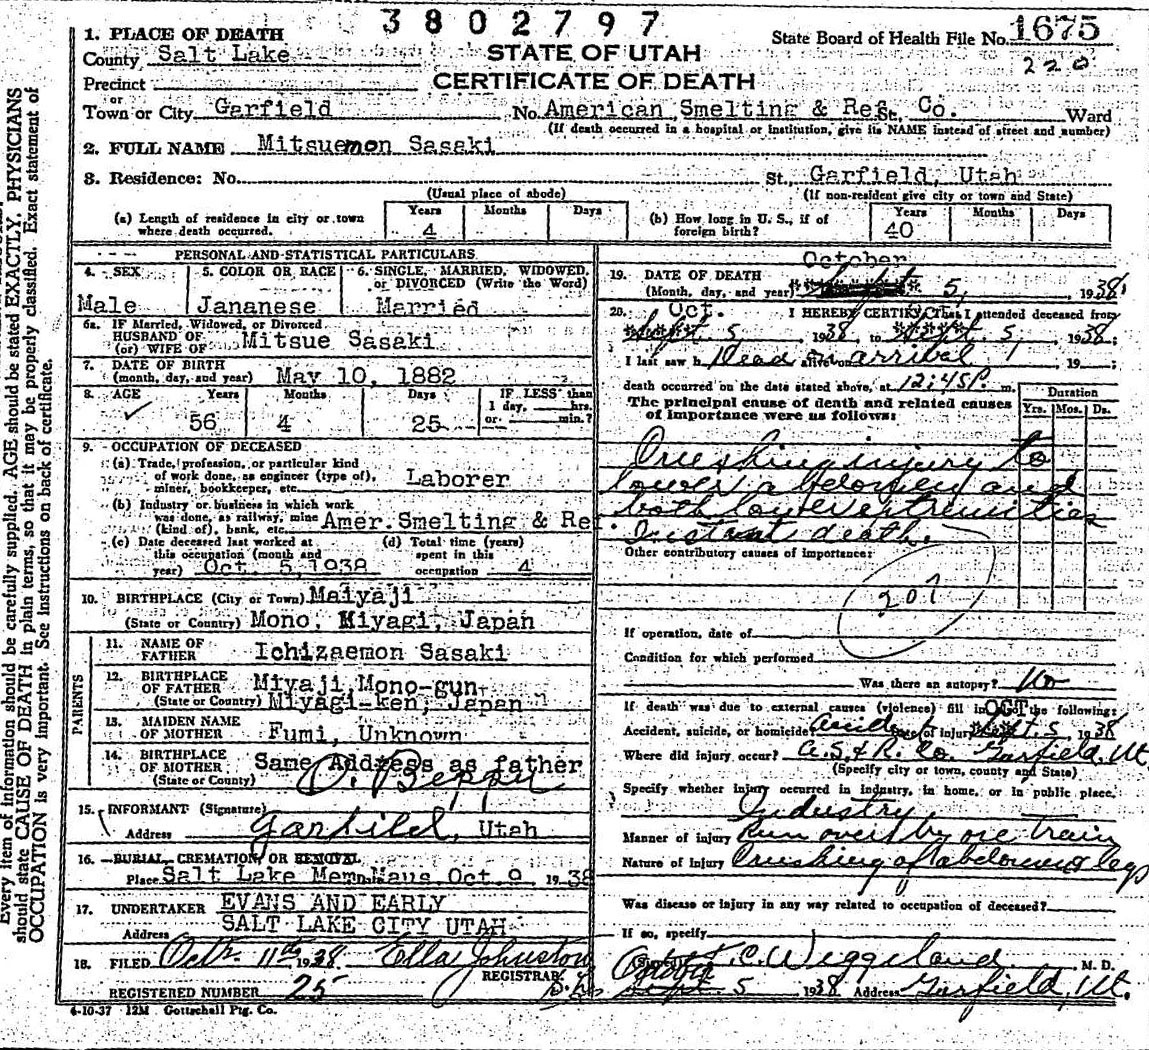 3802797
1. PLACE OF DEATH
County Salt Lake
STATE OF UTAH
State Board of Health File No. 1675
220
Precinct
CERTIFICATE OF DEATH
or
Town or City Garfield No. American Smelting & Ref. St. Co. Ward
(If death occurred in a hospital or institution, give its NAME instead of street and number)
2. FULL NAME Mitsuemon Sasaki
3. Residence: No. St., Garfield, Utah
(Usual place of abode) (If non-resident give city or town and State)
(a) Length of residence in city or town where death occurred. Years 4 Months Days
(b) How long in U. S., if of foreign birth? Years 40 Months Days
PERSONAL AND STATISTICAL PARTICULARS
4. SEX Male
5. COLOR OR RACE Jananese
6. SINGLE, MARRIED, WIDOWED, or DIVORCED (Write the Word) Married
6a. IF Married, Widowed, or Divorced
HUSBAND OF
(or) WIFE OF Mitsue Sasaki
7. DATE OF BIRTH
(month, day, and year) May 10, 1882
8. AGE Years 56 Months 4 Days 25 IF LESS than 1 day, hrs. or min.?
9. OCCUPATION OF DECEASED
(a) Trade, profession, or particular kind
of work done, as engineer (type of),
miner, bookkeeper, etc. Laborer
(b) Industry or business in which work
was done, as railway, mine
(kind of), bank, etc. Amer. Smelting & Ref.
(c) Date deceased last worked at
this occupation (month and
year) Oct. 5, 1938
(d) Total time (years)
spent in this
occupation 4
10. BIRTHPLACE (City or Town) Maiyaji
(State or Country) Mono, Miyagi, Japan
PARENTS
11. NAME OF
FATHER Ichizaemon Sasaki
12. BIRTHPLACE
OF FATHER Miyaji, Mono-gun
(State or Country) Miyagi-ken, Japan
13. MAIDEN NAME
OF MOTHER Fumi, Unknown
14. BIRTHPLACE
OF MOTHER Same Address as father
(State or County)
O. Beppu
15. INFORMANT (Signature)
Address Garfield, Utah
16. BURIAL, CREMATION, OR REMOVAL
Place Salt Lake Mem. Maus. Oct. 9, 1938
17. UNDERTAKER EVANS AND EARLY
Address SALT LAKE CITY UTAH
18. FILED Octr. 11th 1938 Ella Johnston
REGISTRAR.
REGISTERED NUMBER 25
4-10-37 12M Gottschall Ptg. Co.
October
19. DATE OF DEATH
(Month, day, and year) 5, 1938
20. I HEREBY CERTIFY, That I attended deceased from
Oct.
Sept. 5 1938, to Sept. 5, 1938
I last saw h Dead alive on arrival, 19
death occurred on the date stated above, at 12:45P. m.
The principal cause of death and related causes
of importance were as follows:
Duration
Yrs. Mos. Ds.
Crushing injury to
lower abdomen and
both lower extremities
Instant death.
Other contributory causes of importance:
201
If operation, date of
Condition for which performed
Was there an autopsy? No
If death was due to external causes (violence) fill in the following:
OCT
Accident, suicide, or homicide? Accident Date of injury Sept. 5 1938
Where did injury occur? A.S.& R. Co. Garfield. Ut
(Specify city or town, county and State)
Specify whether injury occurred in industry, in home, or in public place.
Industry
Manner of injury Run over by ore train
Nature of Injury Crushing of abdomen & legs
Was disease or injury in any way related to occupation of deceased?
If so, specify
(Signed) T.C. Wiggeland M. D.
Sept. 5 1938 Address Garfield, Ut.
Every item of information should be carefully supplied. AGE should be stated EXACTLY. PHYSICIANS
should state CAUSE OF DEATH in plain terms, so that it may be properly classified. Exact statement of
OCCUPATION is very important. See instructions on back of certificate.